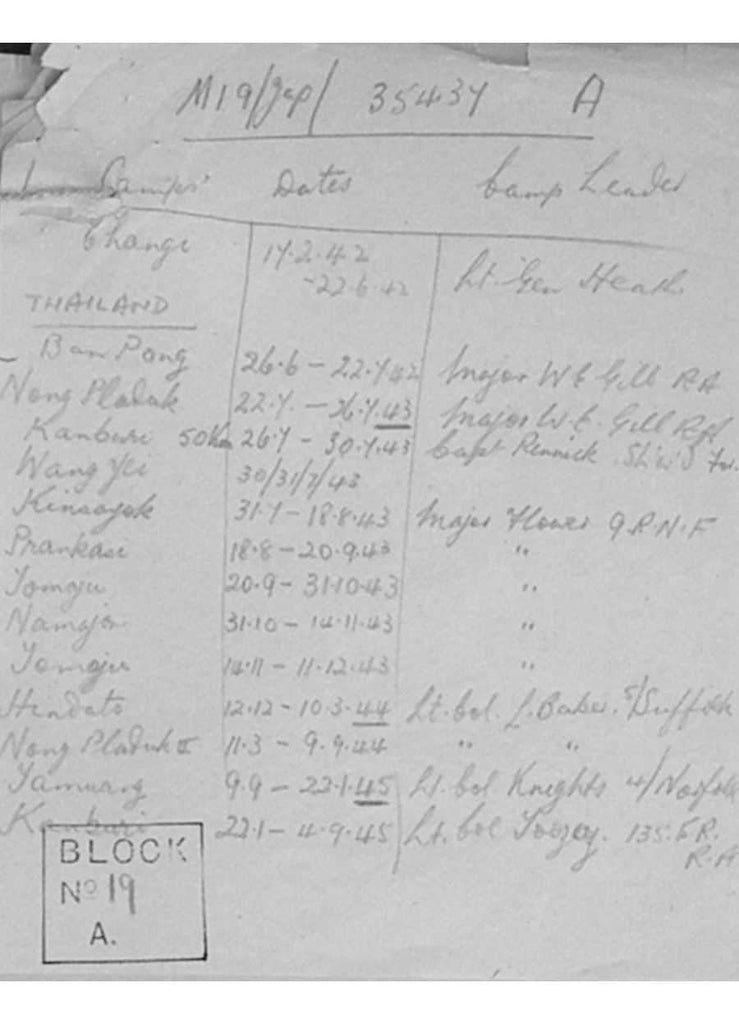 M19/Jap/ 35437 A
Camps Dates Camp Leader
Changi 17.2.42 Lt. Gen Heath
-22.6.42
THAILAND
Ban Pong 26.6 - 22.7.42 Major W E Gill RA
Nong Pladuk 22.7. - 26.7.43 Major W.E. Gill RA
Kanburi 50Km 26.7 - 30.7.43 Capt Rennick
Wang Yei 30/31/7/43
Kinsayok 31.7 - 18.8.43 Major Flower 9.R.N.F
Prankasi 18.8 - 20.9.43 "
Tomoju 20.9 - 31.10.43 "
Namajon 31.10 - 14.11.43 "
Tomoju 14.11 - 11.12.43 "
Hindato 12.12 - 10.3.44 Lt. Col. L. Baker. 5/Suffolk
Nong Pladuk II 11.3 - 9.9.44 " "
Tamuang 9.9 - 22.1.45 Lt. Col Knights 4/Norfolk
Kanburi 22.1 - 4.9.45 Lt. Col Toosey. 135.F.R.
R.A
BLOCK
No 19
A.